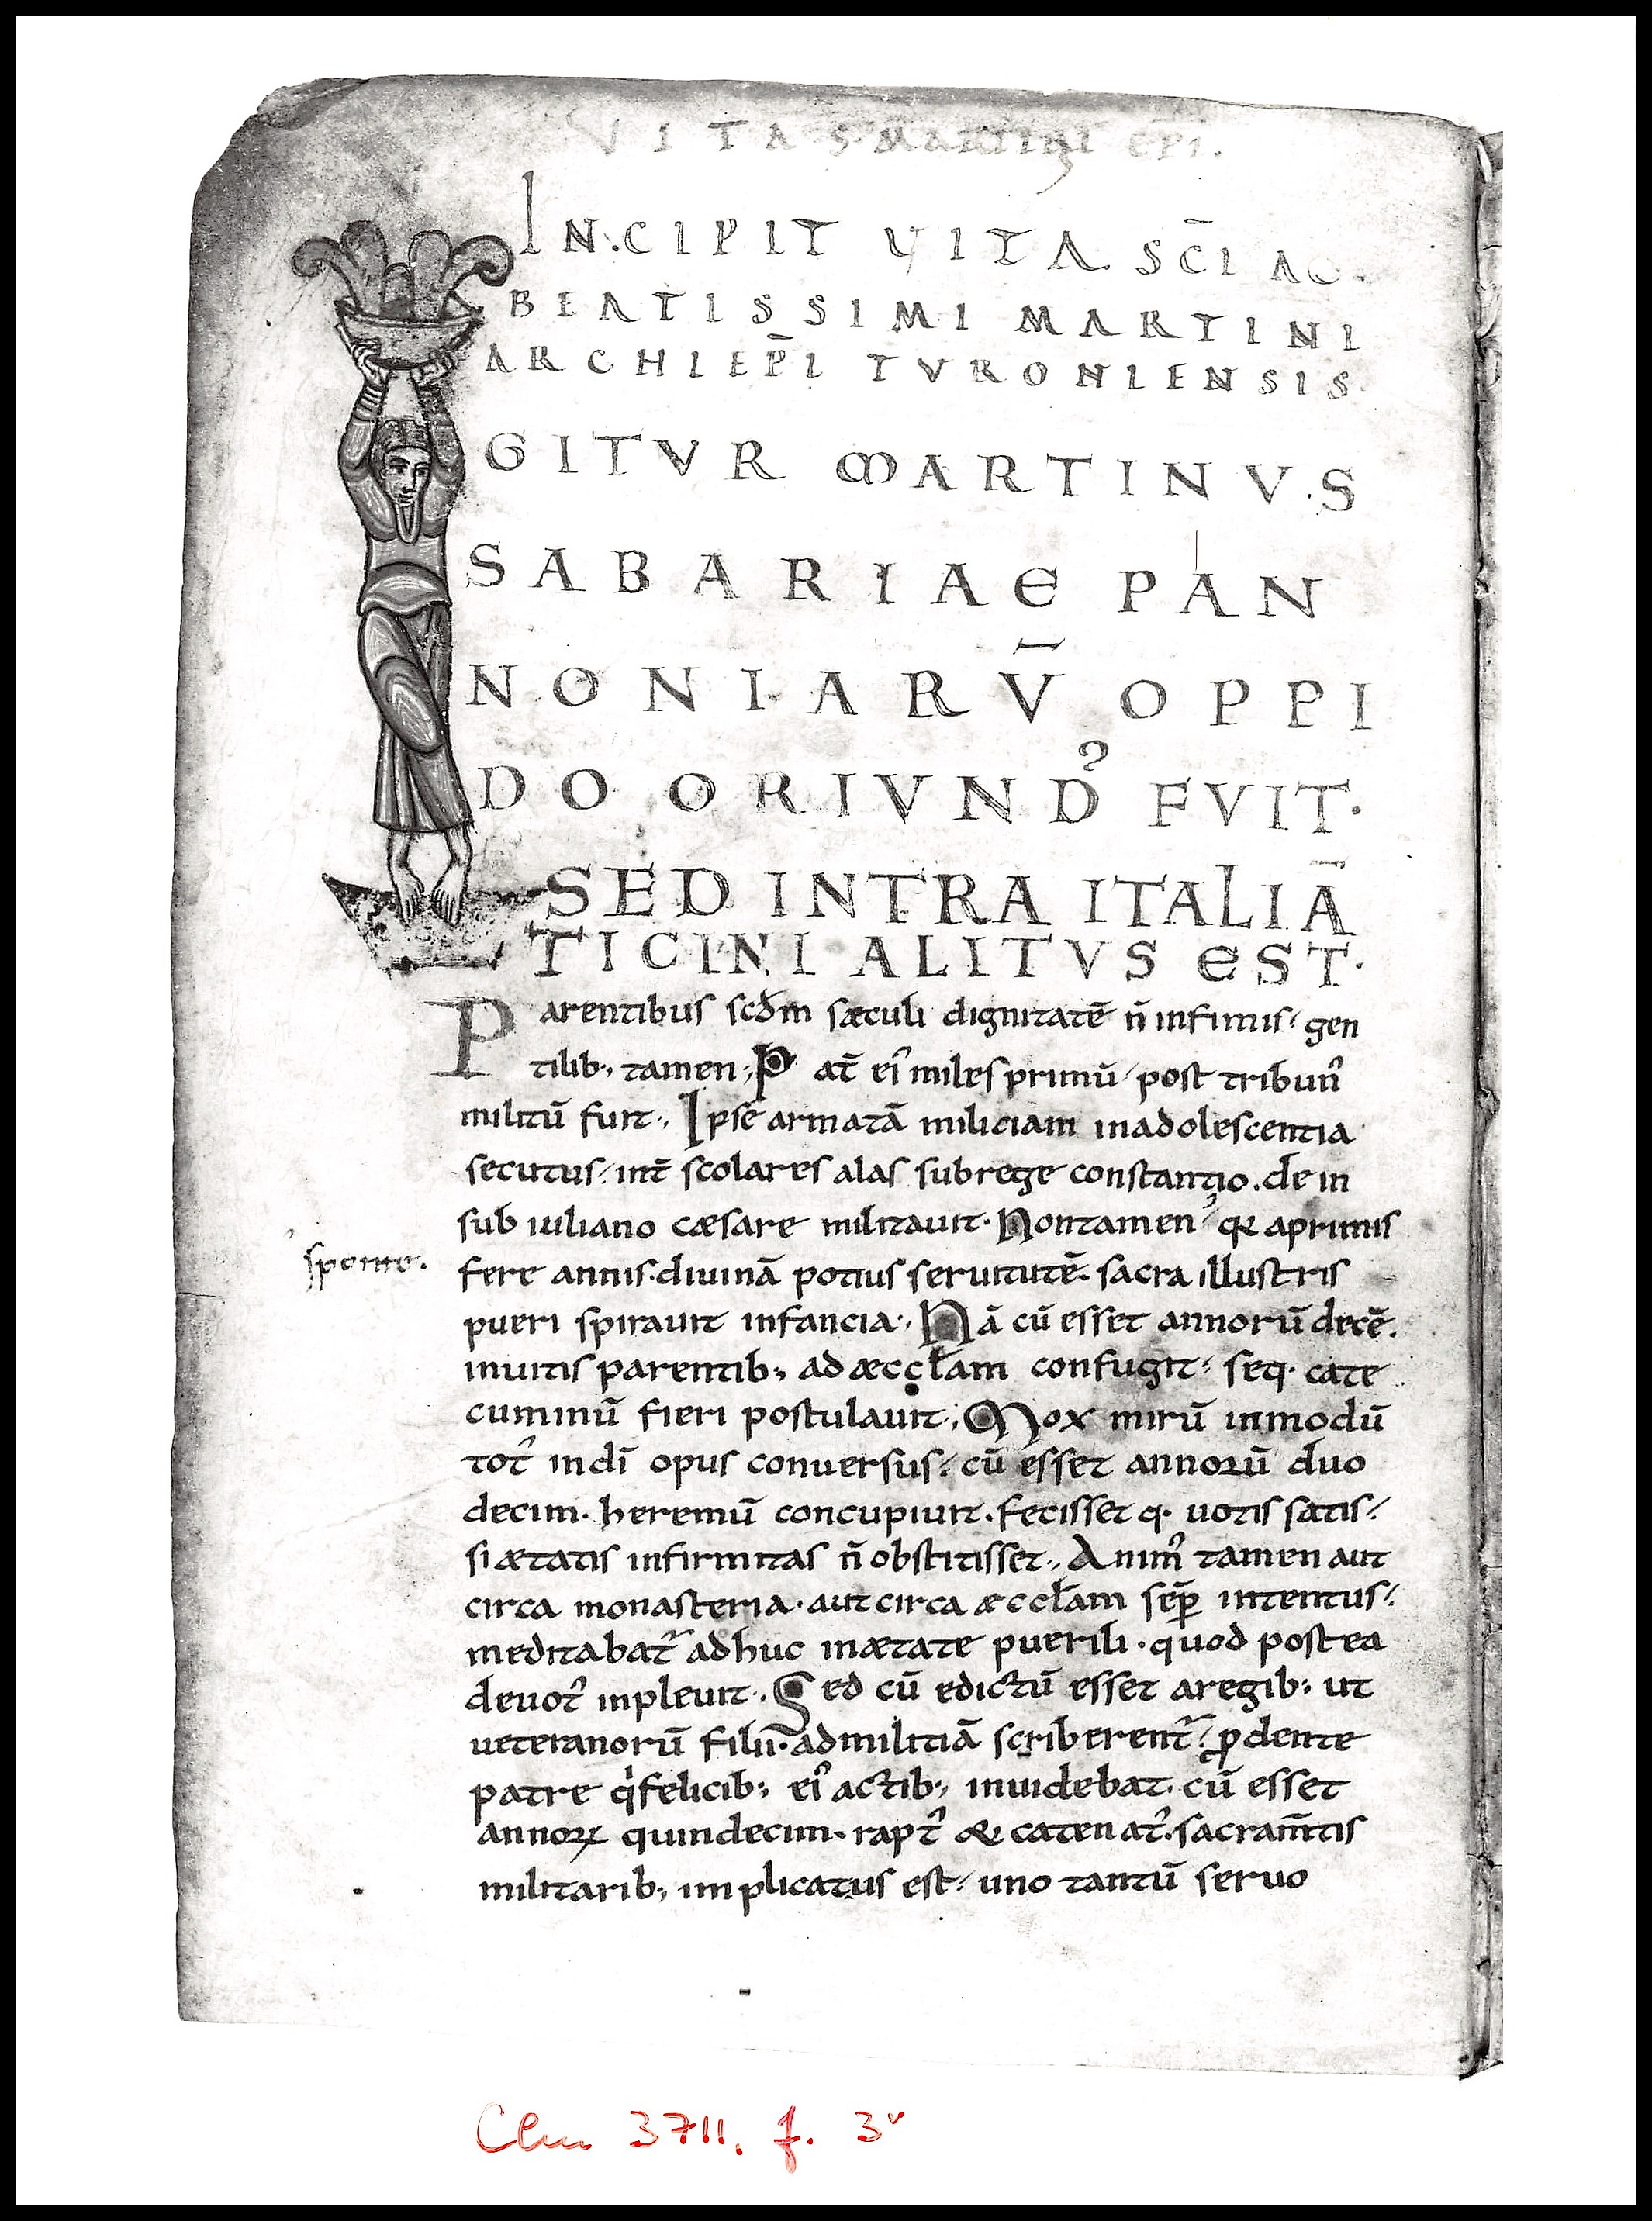 VITA S. Martini ep̄i.
INCIPIT VITA SC̄I AC
BEATISSIMI MARTINI
ARCHIEP̄I TVRONIENSIS
GITVR MARTINVS
SABARIAE PAN
NONIARV̄ OPPI
DO ORIVNDꝰ FVIT·
SED INTRA ITALIĀ
TICINI ALITVS EST·
Parentibus scd̄m sæculi dignitatē n̄ infimis· gen
tilib; tamen; Pat̄ eiꝰ miles primū post tribunꝰ
militū fuit·, Ipse armatā miliciam inadolescentia
secutus· int̄ scolares alas subrege constantio. de in
sub iuliano cæsare militauit· Nontamen qꝫ aprimis
sponte.
fere annis· diuinā potius seruitutē· sacra illustris
pueri spirauit infancia·, Nā cū esset annorū decē·
inuitis parentib; ad æccl̄am confugit· seq· cate
cuminū fieri postulauit·, Mox mirū inmodū
totꝰ indī opus conuersus· cū esset annorū duo
decim· heremū concupiuit· fecisset q· uotis satis·
si ætatis infirmitas n̄ obstitisset·, Animꝰ tamen aut
circa monasteria· aut circa æccl̄am sēp intentus·
meditabat᷑ adhuc inætate puerili· quod postea
deuotꝰ inpleuit·, Sed cū edictū esset aregib; ut
ueteranorū filii· admilitiā scriberent᷑· ꝓdente
patre qͥ felicib; eiꝰ actib; inuidebat· cū esset
annoꝝ quindecim· raptꝰ & catenatꝰ· sacram̄tis
militarib; implicatus est· uno tantū seruo
Clm 3711, f. 3v